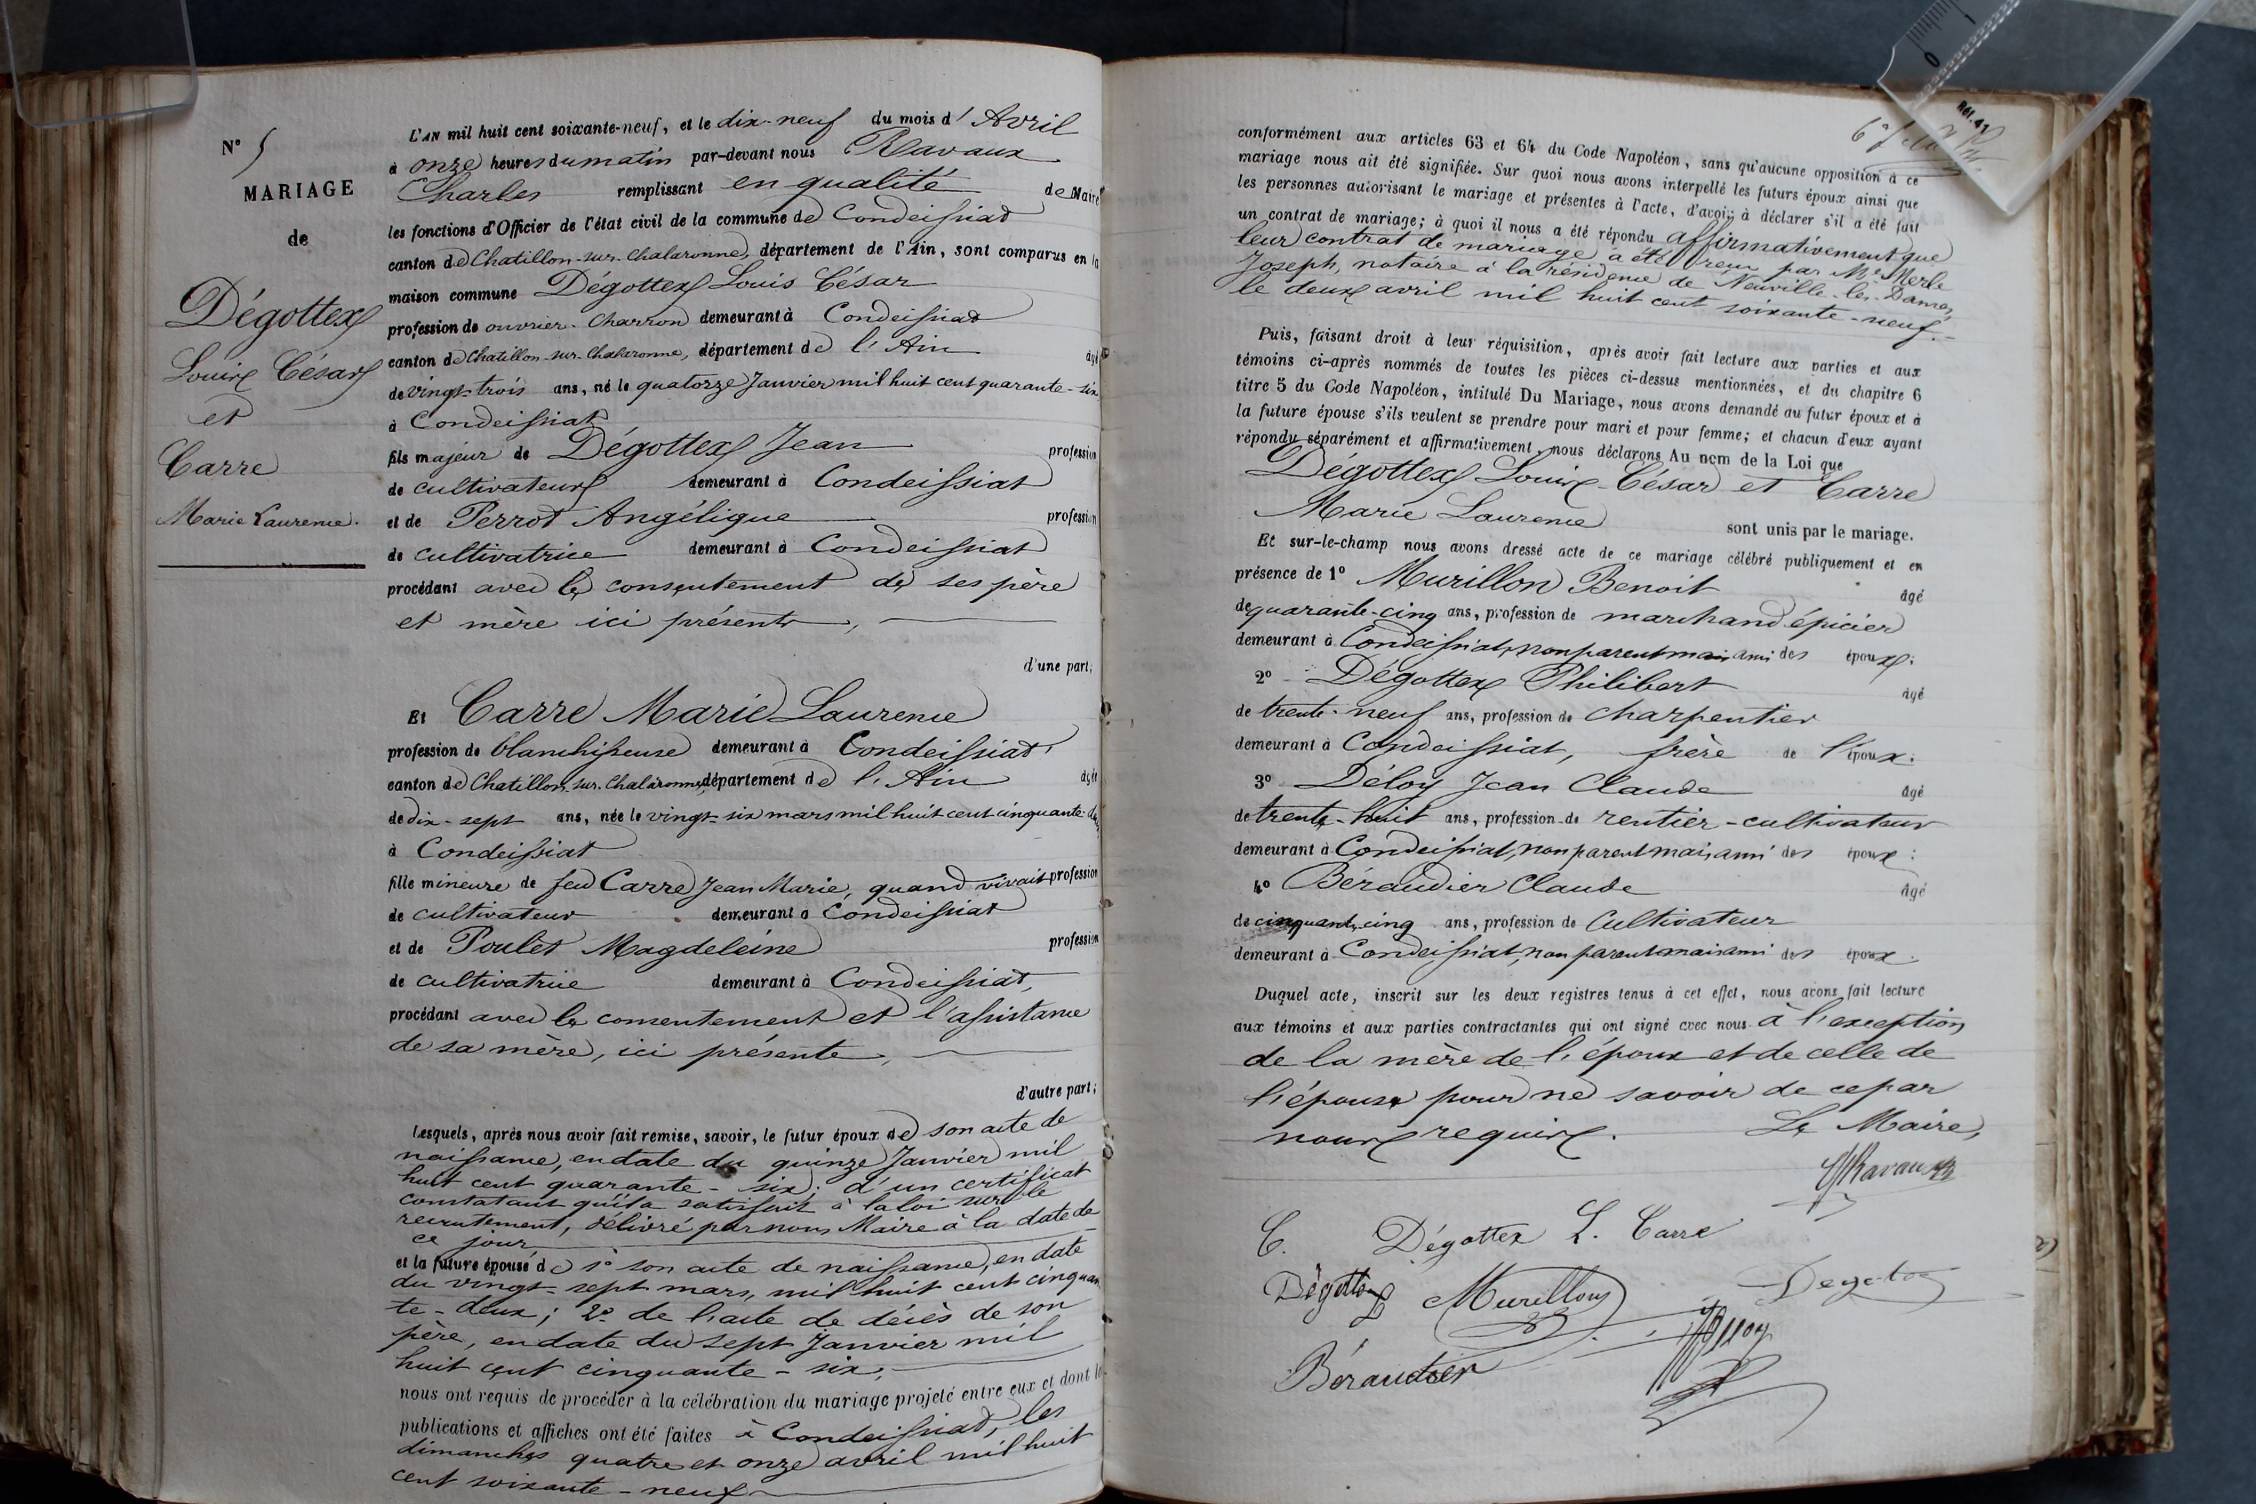 N° 5
MARIAGE
de
Dégottex
Louis César
et
Carre
Marie Laurence.
L'AN mil huit cent soixante-neuf, et le dix-neuf du mois d'Avril
à onze heures du matin par-devant nous Ravaux
Charles remplissant en qualité de Maire
les fonctions d'Officier de l'état civil de la commune de Condeissiat
canton de Chatillon-sur-Chalaronne, département de l'Ain, sont comparus en la
maison commune Dégottex Louis César
profession de ouvrier-Charron demeurant à Condeissiat
canton de Chatillon-sur-Chalaronne, département de l'Ain âgé
de vingt-trois ans, né le quatorze Janvier mil huit cent quarante-six
à Condeissiat
fils majeur de Dégottex Jean profession
de cultivateur demeurant à Condeissiat
et de Perrot Angélique profession
de cultivatrice demeurant à Condeissiat
procédant avec le consentement de ses père
et mère ici présents,
d'une part;
Et Carre Marie Laurence
profession de blanchisseuse demeurant à Condeissiat,
canton de Chatillon-sur-Chalaronne département de l'Ain âgée
de dix-sept ans, née le vingt-six mars mil huit cent cinquante-deux
à Condeissiat
fille mineure de feu Carre Jean Marie, quand vivait profession
de cultivateur demeurant à Condeissiat
et de Poulet Magdeleine profession
de cultivatrice demeurant à Condeissiat,
procédant avec le consentement et l'assistance
de sa mère, ici présente,
d'autre part;
Lesquels, après nous avoir fait remise, savoir, le futur époux de son acte de
naissance, en date du quinze Janvier mil
huit cent quarante-six; d'un certificat
constatant qu'il a satisfait à la loi sur le
recrutement, délivré par nous Maire à la date de
ce jour
et la future épouse de 1° son acte de naissance, en date
du vingt-sept mars, mil huit cent cinquan
te-deux; 2° de l'acte de décès de son
père, en date du sept Janvier mil
huit cent cinquante-six;
nous ont requis de procéder à la célébration du mariage projeté entre eux et dont les
publications et affiches ont été faites à Condeissiat, les
dimanches quatre et onze avril mil huit
cent soixante-neuf
Réf. 41
0 1
conformément aux articles 63 et 64 du Code Napoléon, sans qu'aucune opposition à ce
mariage nous ait été signifiée. Sur quoi nous avons interpellé les futurs époux ainsi que
les personnes autorisant le mariage et présentes à l'acte, d'avoir à déclarer s'il a été fait
un contrat de mariage; à quoi il nous a été répondu affirmativement que
leur contrat de mariage a été reçu par Me Merle
Joseph, notaire à la résidence de Neuville-les-Dames,
le deux avril mil huit cent soixante-neuf.
Puis, faisant droit à leur réquisition, après avoir fait lecture aux parties et aux
témoins ci-après nommés de toutes les pièces ci-dessus mentionnées, et du chapitre 6
titre 5 du Code Napoléon, intitulé Du Mariage, nous avons demandé au futur époux et à
la future épouse s'ils veulent se prendre pour mari et pour femme; et chacun d'eux ayant
répondu séparément et affirmativement, nous déclarons Au nom de la Loi que
Dégottex Louis César et Carre
Marie Laurence sont unis par le mariage.
Et sur-le-champ nous avons dressé acte de ce mariage célébré publiquement et en
présence de 1° Murillon Benoit âgé
de quarante-cinq ans, profession de marchand épicier
demeurant à Condeissiat, non parent mais ami des époux;
2° Dégottex Philibert âgé
de trente-neuf ans, profession de charpentier
demeurant à Condeissiat, frère de l'époux.
3° Déloy Jean Claude âgé
de trente-huit ans, profession de rentier-cultivateur
demeurant à Condeissiat, non parent mais ami des époux;
4° Béraudier Claude âgé
de cinquante-cinq ans, profession de Cultivateur
demeurant à Condeissiat, non parent mais ami des époux.
Duquel acte, inscrit sur les deux registres tenus à cet effet, nous avons fait lecture
aux témoins et aux parties contractantes qui ont signé avec nous à l'exception
de la mère de l'époux et de celle de
l'épouse pour ne savoir de ce par
nous requis. Le Maire,
Ravaux
C. Dégottex L. Carre
Dégottex Murillon Degotex
Béraudier